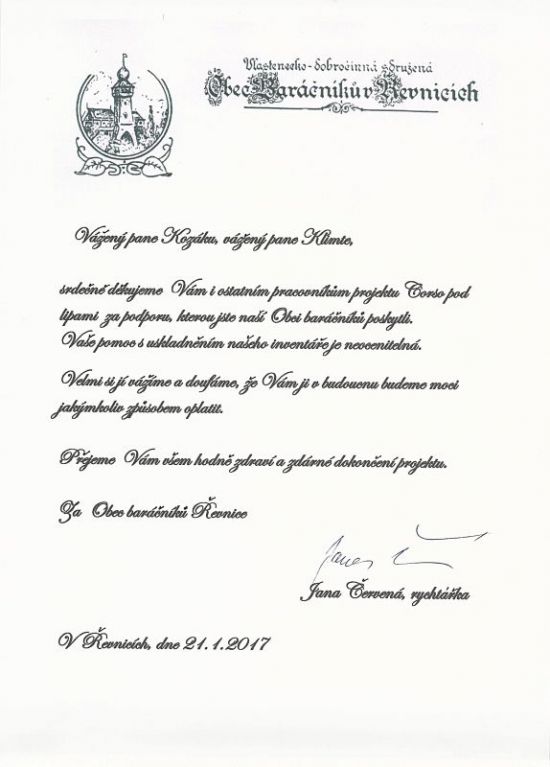 Vlastenecko-dobročinná sdružená
Obec Baráčníků v Řevnicích
Vážený pane Kozáku, vážený pane Klimte,
srdečně děkujeme Vám i ostatním pracovníkům projektu Corso pod
lipami za podporu, kterou jste naší Obci baráčníků poskytli.
Vaše pomoc s uskladněním našeho inventáře je neocenitelná.
Velmi si jí vážíme a doufáme, že Vám ji v budoucnu budeme moci
jakýmkoliv způsobem oplatit.
Přejeme Vám všem hodně zdraví a zdárné dokončení projektu.
Za Obec baráčníků Řevnice
Jana Červená, rychtářka
V Řevnicích, dne 21.1.2017